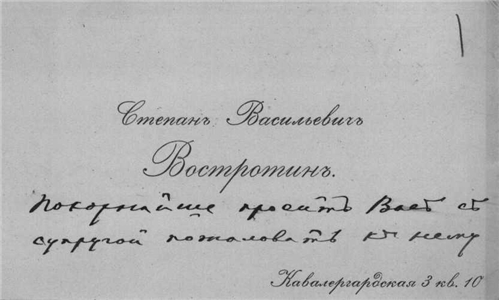 Степанъ Васильевичъ
Востротинъ.
Покорнѣйше проситъ Васъ съ
супругой пожаловать къ нему
Кавалергардская 3 кв. 10